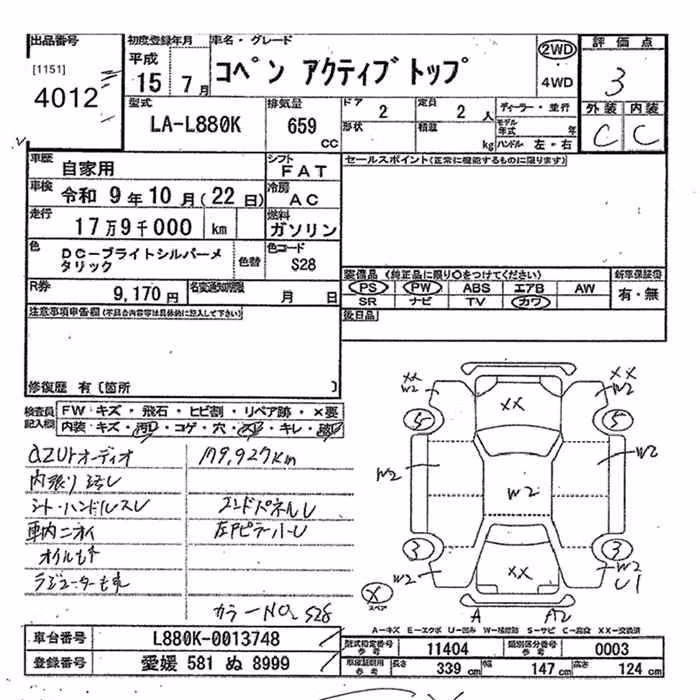 出品番号
[1151]
4012
初度登録年月
平成
15 7月
車名・グレード
コペン アクティブトップ
2WD
4WD
評価点
3
外装 内装
C C
型式
LA-L880K
排気量
659 cc
ドア
2
定員
2 人
形状
積載
kg
ディーラー・並行
モデル年式 年
ハンドル 左・右
車歴
自家用
シフト
FAT
車検
令和 9年10月(22日)
冷房
AC
走行
17万9千000 km
燃料
ガソリン
色
DC-ブライトシルバーメタリック
色替
色コード
S28
R券
9,170円
名変通知期限
月 日
セールスポイント(正常に機能するものに限ります)
装備品(純正品に限り○をつけてください)
PS PW ABS エアB AW
SR ナビ TV カワ
新車保証書
有・無
後日品
注意事項申告欄(不具合内容等は具体的に記入して下さい)
修復歴 有〔箇所 〕
検査員記入欄
FW キズ・飛石・ヒビ割・リペア跡・×要
内装・キズ・汚レ・コゲ・穴・スレ・キレ・
オーディオ
179,927km
内張り
シート・ハンドルスレ
エンドパネルU
車内ニオイ
左Pピラー
オイルモレ
ラジエーターモレ
カラーNO, S28
XX
W2
XX
W2
XX
5
5
W2
W2
W2
3
3
XX
W2
W2
U1
X
スペア
A
A2
A=キズ E=エクボ U=凹み W=補修跡 S=サビ C=腐食 XX=交換済
車台番号
L880K-0013748
登録番号
愛媛 581 ぬ 8999
型式指定番号
参考
11404
類別区分番号
参考
0003
車検証用
参考
長さ
339 cm
幅
147 cm
高さ
124 cm